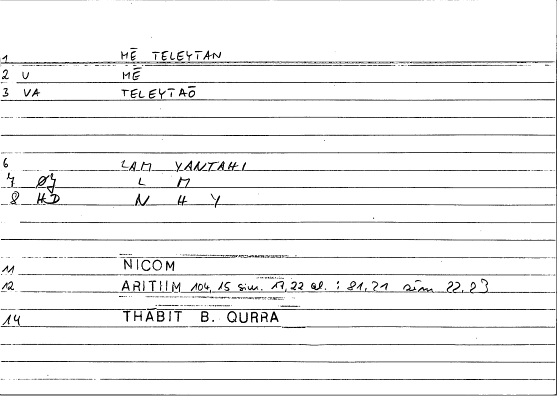 1 MĒ TELEYTAN
2 U MĒ
3 VA TELEYTAŌ
6 LAM YANTAHI
7 ØJ L M
8 HD N H Y
11 NICOM
12 ARITIIM 104, 15 sim. 17, 22 al. : 81, 21 sim 22, 23
14 THABIT B. QURRA